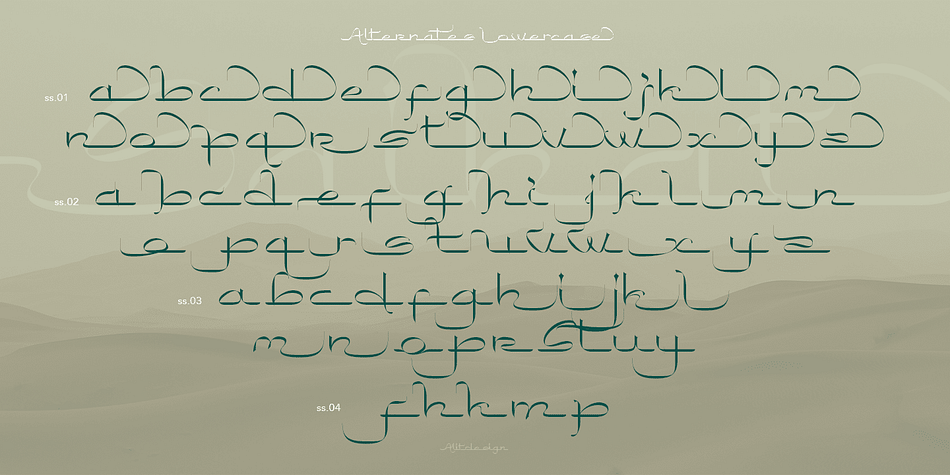 Alternates Lowercase
ss.01 a b c d e f g h i j k l m
n o p q r s t u v w x y z
ss.02 a b c d e f g h i j k l m n
o p q r s t u v w x y z
ss.03 a b c d f g h i j k l
m n o p r s t u y
ss.04 f h k m p
Alitdesign